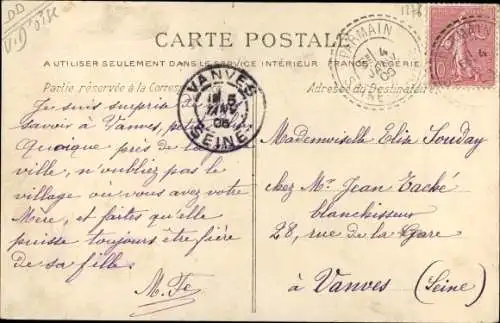 CARTE POSTALE
A UTILISER SEULEMENT DANS LE SERVICE INTÉRIEUR FRANCE, ALGÉRIE
Partie réservée à la Corresp
Adresse du Destinataire
PARMAIN
4
SEINE
VANVES
5
JANV
06
SEINE
Je suis surprise
savoir à Vanves,
Quoique près de la
ville, n'oubliez pas le
village où vous avez votre
Mère, et faites qu'elle
puisse toujours être fière
de sa fille.
M. Fe
Mademoiselle Elise Souday
chez Mr Jean Taché
blanchisseur
28, rue de la Gare
à Vanves (Seine)